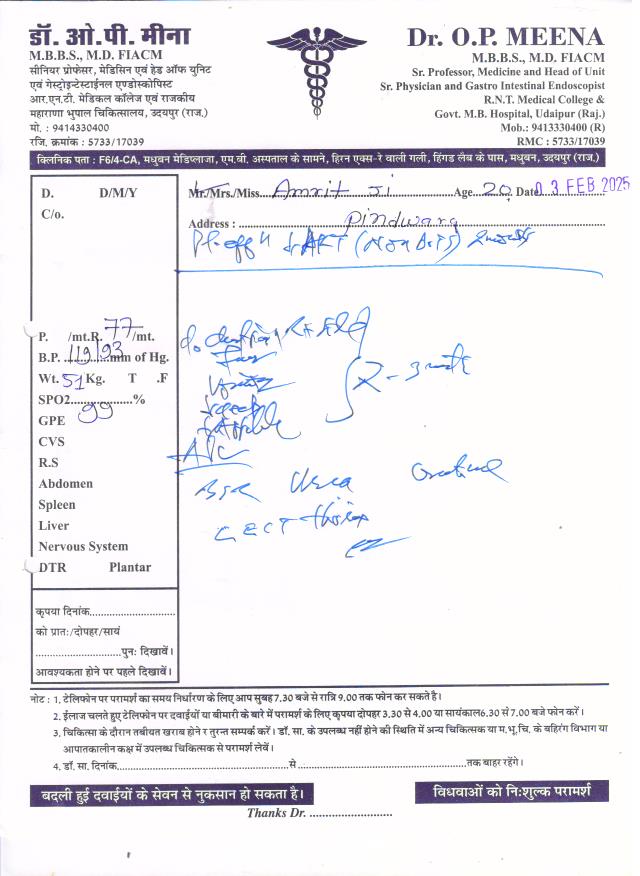 डॉ. ओ.पी. मीना
M.B.B.S., M.D. FIACM
सीनियर प्रोफेसर, मेडिसिन एवं हेड ऑफ यूनिट
एवं गेस्ट्रोइन्टेस्टाईनल एण्डोस्कोपिस्ट
आर.एन.टी. मेडिकल कॉलेज एवं राजकीय
महाराणा भुपाल चिकित्सालय, उदयपुर (राज.)
मो. : 9414330400
रजि. क्रमांक : 5733/17039
Dr. O.P. MEENA
M.B.B.S., M.D. FIACM
Sr. Professor, Medicine and Head of Unit
Sr. Physician and Gastro Intestinal Endoscopist
R.N.T. Medical College &
Govt. M.B. Hospital, Udaipur (Raj.)
Mob.: 9413330400 (R)
RMC : 5733/17039
क्लिनिक पता : F6/4-CA, मधुबन मेडिप्लाजा, एम.बी. अस्पताल के सामने, हिरन एक्स-रे वाली गली, हिंगड लैब के पास, मधुबन, उदयपुर (राज.)
D. D/M/Y
C/o.
Mr./Mrs./Miss Amrit Ji Age 20 Date 03 FEB 2025
Address : Pindwara
P. /mt.R. 77 /mt.
B.P. 119/93 mm of Hg.
Wt. 51 Kg. T .F
SPO2 99 %
GPE
CVS
R.S
Abdomen
Spleen
Liver
Nervous System
DTR Plantar
Urea
CECT thorax
कृपया दिनांक
को प्रातः/दोपहर/सायं
पुनः दिखावें।
आवश्यकता होने पर पहले दिखावें।
नोट : 1. टेलिफोन पर परामर्श का समय निर्धारण के लिए आप सुबह 7.30 बजे से रात्रि 9.00 तक फोन कर सकते है।
2. ईलाज चलते हुए टेलिफोन पर दवाईयों या बीमारी के बारे में परामर्श के लिए कृपया दोपहर 3.30 से 4.00 या सायंकाल 6.30 से 7.00 बजे फोन करें।
3. चिकित्सा के दौरान तबीयत खराब होने र तुरन्त सम्पर्क करें। डॉ. सा. के उपलब्ध नहीं होने की स्थिति में अन्य चिकित्सक या म.भू.चि. के बहिरंग विभाग या
आपातकालीन कक्ष में उपलब्ध चिकित्सक से परामर्श लेवें।
4. डॉ. सा. दिनांक से तक बाहर रहेंगे।
बदली हुई दवाईयों के सेवन से नुकसान हो सकता है।
विधवाओं को निःशुल्क परामर्श
Thanks Dr.